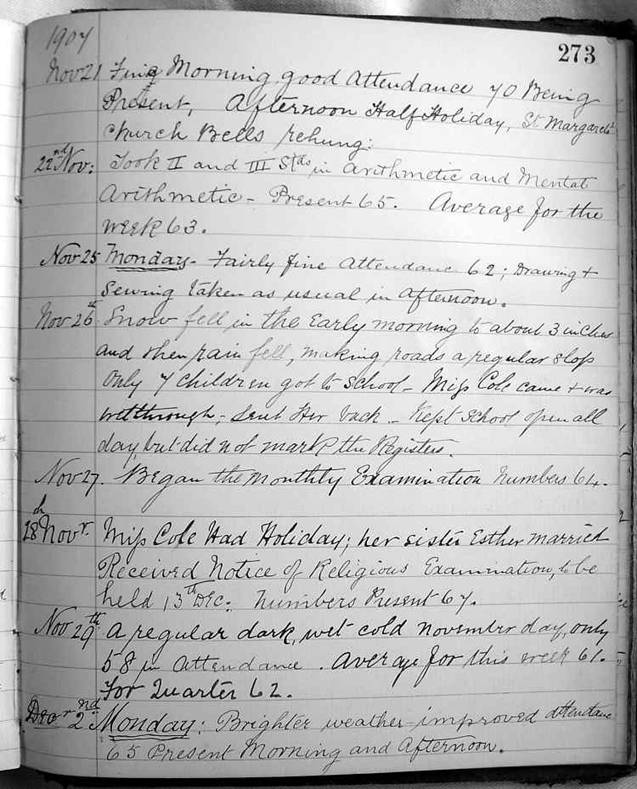 1907
273
Nov 21 Fine Morning good Attendance 70 Being
Present, Afternoon Half Holiday, St Margarets
Church Bells rehung:
22nd Nov: Took II and III Stds in Arithmetic and Mental
Arithmetic - Present 65. Average for the
week 63.
Nov 25 Monday - Fairly fine Attendance 62; Drawing +
Sewing taken as usual in afternoon.
Nov 26th Snow fell in the Early morning to about 3 inches
and then rain fell, making roads a regular slop
Only 7 children got to School - Miss Cole came + was
wet through - Sent Her back - Kept School open all
day, but did not mark the Registers.
Nov 27. Began the Monthly Examination Numbers 64.
28th Novr. Miss Cole Had Holiday; her sister Esther married
Received Notice of Religious Examination, to be
held 13th Dec: Numbers Present 67.
Nov 29th A regular dark, wet cold November day, only
58 in Attendance. Average for this week 61.
For Quarter 62.
Decr 2nd Monday: Brighter weather - improved attendance
65 Present Morning and Afternoon.